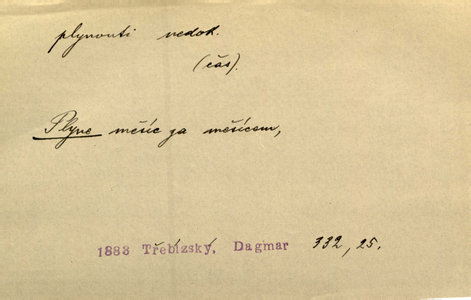 plynouti nedok.
(čas).
Plyne měsíc za měsícem,
1883 Třebízský, Dagmar 332, 25.